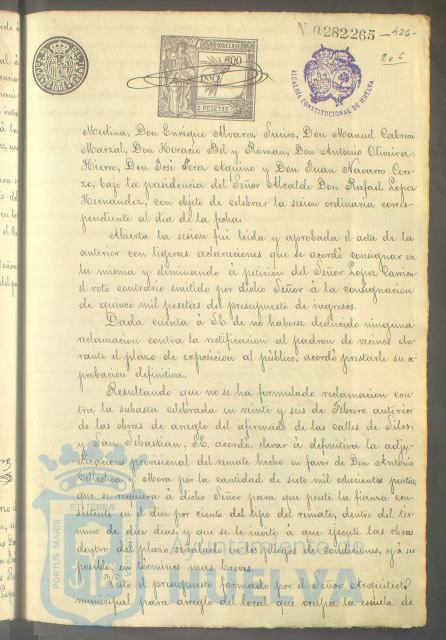 N 0.282.265
-426-
800
1897
2 PESETAS
ALCALDIA CONSTITUCIONAL DE HUELVA
Medina, Don Enrique Alvarez Suero, Don Manuel Cabrera
Marzal, Don Horacio Bel y Roman, Don Antonio Oliveira
Hierro, Don José Perez Aquino y Don Juan Navarro Cere-
zo, bajo la presidencia del Señor Alcalde Don Rafael Lopez
Hernandez, con objeto de celebrar la sesion ordinaria corres-
pondiente al dia de la fecha.
Abierta la sesion fué leida y aprobada el acta de la
anterior con ligeras aclaraciones que se acordó consignar en
la misma y eliminando á petición del Señor Lopez Carrion
el voto contrario emitido por dicho Señor á la consignacion
de quince mil pesetas del presupuesto de ingresos.
Dada cuenta á S.E. de no haberse deducido ninguna
reclamacion contra la rectificacion al padron de vecinos du-
rante el plazo de exposicion al público, acordó prestarle su a-
probacion definitiva.
Resultando que no se ha formulado reclamacion con-
tra la subasta celebrada en veinte y seis de Febrero anterior
de las obras de arreglo del afirmado de las calles de Silos
y San Sebastian, S.E. acordó, elevar á definitiva la adju-
dicacion provisional del remate hecho en favor de Don Antonio
y Mora por la cantidad de siete mil ochocientas pesetas
que se requiera á dicho Señor para que preste la fianza con-
sistente en el diez por ciento del tipo del remate, dentro del tér-
mino de diez dias, y que se le invite á que ejecute las obras
dentro del plazo señalado en los pliegos de condiciones, y á ser
posible, en términos mas breves.
Visto el presupuesto formado por el Señor Arquitecto
municipal para arreglo del local que ocupa la escuela de
PORTUS MARIS
Ayuntamiento de
HUELVA